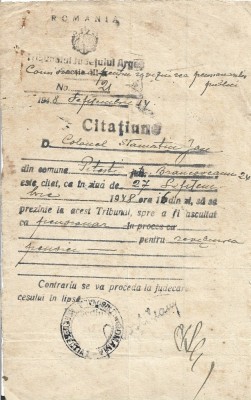 ROMANIA
Tribunalul Județului Argeș
pentru revizuirea pensionarilor
publici
No
1948 Septembrie 14
Citațiune
D. Colonel Stamatin Ion
din comuna Pitești Brancoveanu 24
este citat, ca în ziua de 27 Septem
brie 1948 ora 16 din zi, să se
prezinte la acest Tribunal, spre a fi ascultat
ca pensionar în proces cu
pentru revizuirea
pensiei
Contrariu se va proceda la judecarea pro-
cesului în lipsă.